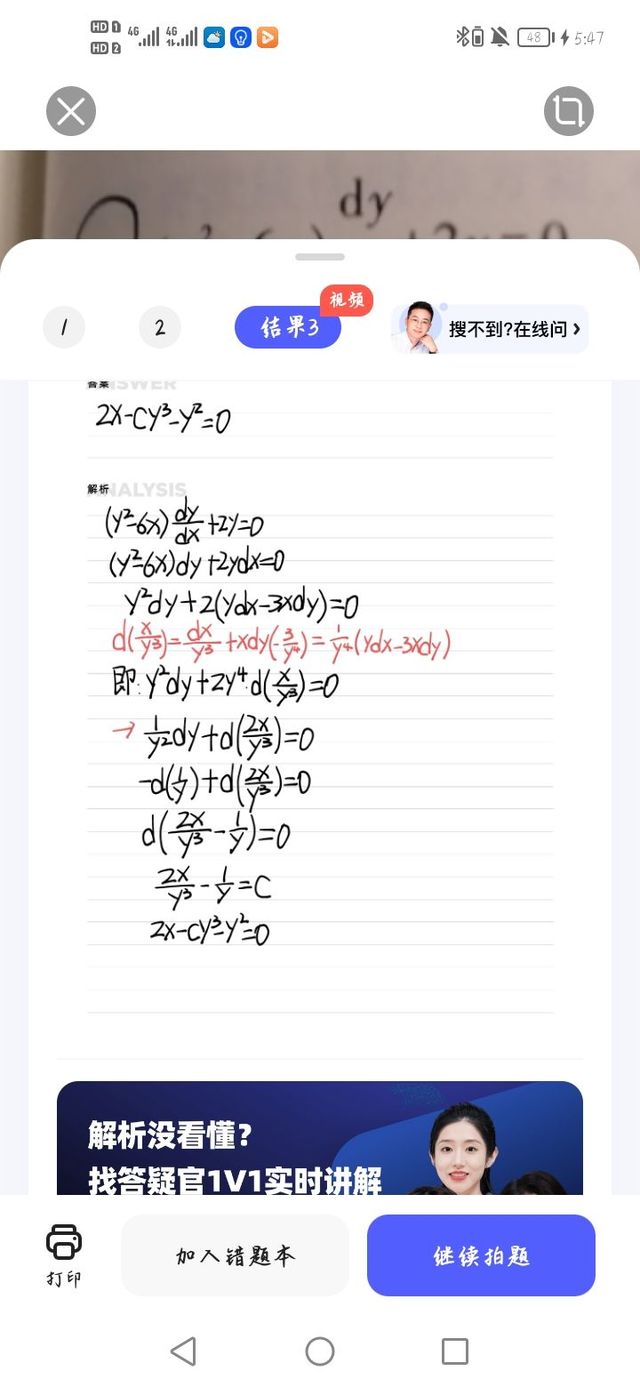 HD 1 4G 4G
HD 2
48 5:47
dy
+2y=0
1
2
结果3
视频
搜不到?在线问 ›
答案
ANSWER
2x-cy³-y²=0
解析
ANALYSIS
(y²-6x)dy/dx+2y=0
(y²-6x)dy+2ydx=0
y²dy+2(ydx-3xdy)=0
d(x/y³)=dx/y³+xdy(-3/y⁴)=1/y⁴(ydx-3xdy)
即:y²dy+2y⁴·d(x/y³)=0
→ 1/y²dy+d(2x/y³)=0
-d(1/y)+d(2x/y³)=0
d(2x/y³-1/y)=0
2x/y³-1/y=C
2x-cy³-y²=0
解析没看懂?
找答疑官1V1实时讲解
打印
加入错题本
继续拍题